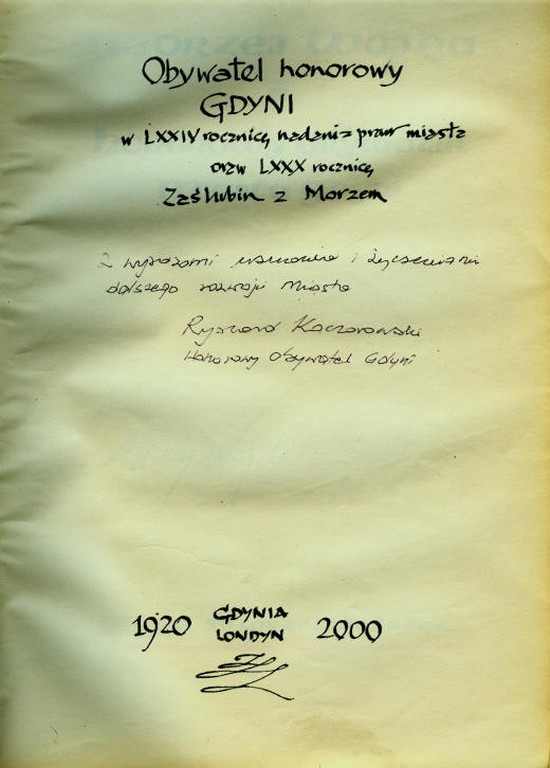 Obywatel honorowy
GDYNI
w LXXIV rocznicę nadania praw miasta
oraz LXXX rocznicę
Zaślubin z Morzem
Z wyrazami uznania i życzeniami
dalszego rozwoju Miasta
Ryszard Kaczorowski
Honorowy Obywatel Gdyni
1920 GDYNIA 2000
LONDYN